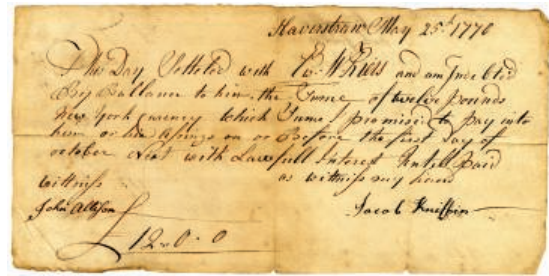 Haverstraw May 25th 1770
This Day Settled with and am Indebted
By Ballance to him the Sume of twelve pounds
New York currency which Sume I promise to pay unto
him or his Asigns on or Before the first Day of
october Next with Lawfull Interest Untill Paid
Wittniss as wittniss my hand
John Allison Jacob Kniffin
£12-0-0